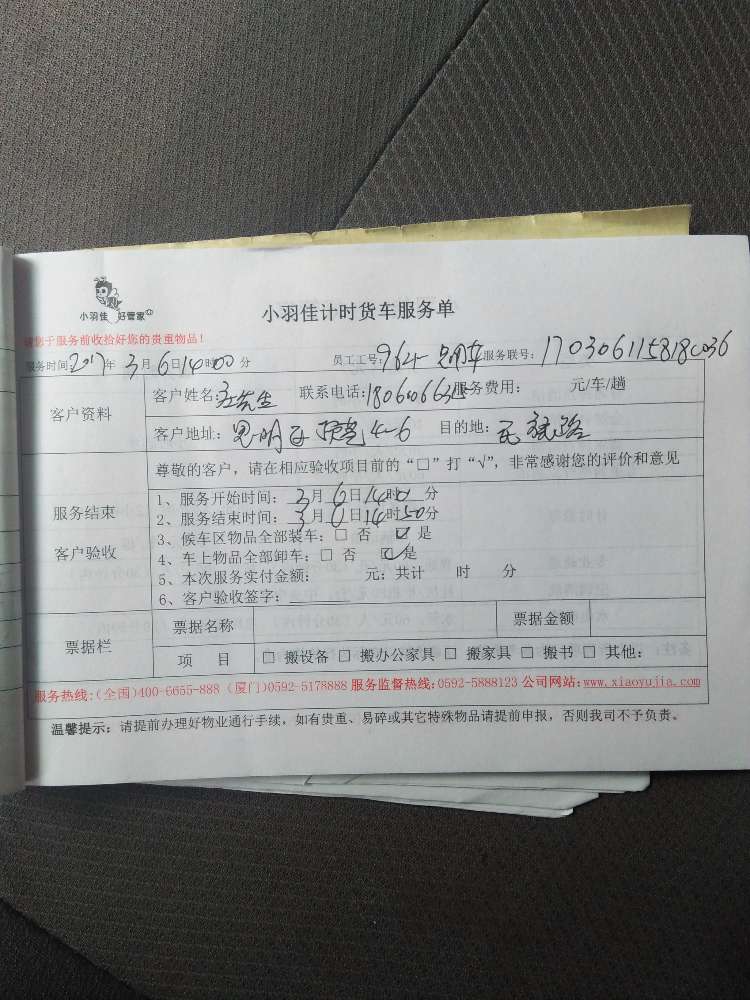 小羽佳 好管家
小羽佳计时货车服务单
请您于服务前收拾好您的贵重物品！
服务时间:2017年 3月 6日14时00分 员工工号: 964 服务联号: 170306115818
客户资料
客户姓名: 先生 联系电话: 服务费用： 元/车/趟
客户地址: 思明区 4-6 目的地: 民族路
尊敬的客户，请在相应验收项目前的“□”打“√”，非常感谢您的评价和意见
服务结束
客户验收
1、服务开始时间： 3月 6日14时0 分
2、服务结束时间： 3月 6日14时50分
3、候车区物品全部装车：□ 否 ☑ 是
4、车上物品全部卸车：□ 否 ☑ 是
5、本次服务实付金额： 元；共计 时 分
6、客户验收签字：
票据栏
票据名称 票据金额
项 目 □ 搬设备 □ 搬办公家具 □ 搬家具 □ 搬书 □ 其他：
服务热线：(全国)400-6655-888 (厦门)0592-5178888 服务监督热线：0592-5888123 公司网站：www.xiaoyujia.com
温馨提示：请提前办理好物业通行手续，如有贵重、易碎或其它特殊物品请提前申报，否则我司不予负责。